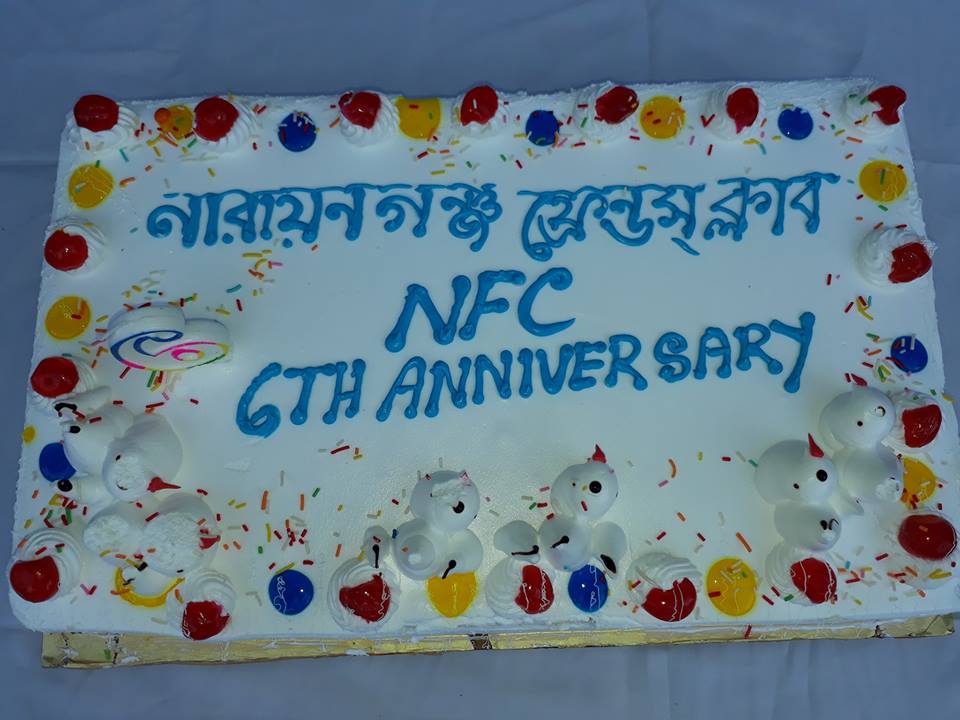 নারায়নগঞ্জ ফ্রেন্ডস্ ক্লাব
NFC
6TH ANNIVERSARY